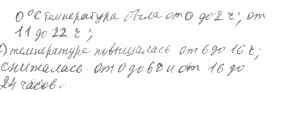 0°С температура была от 0 до 2 ч; от
11 до 22 ч;
) температура повышалась от 6 до 16 ч;
снижалась от 0 до 6 ч и от 16 до
24 часов.